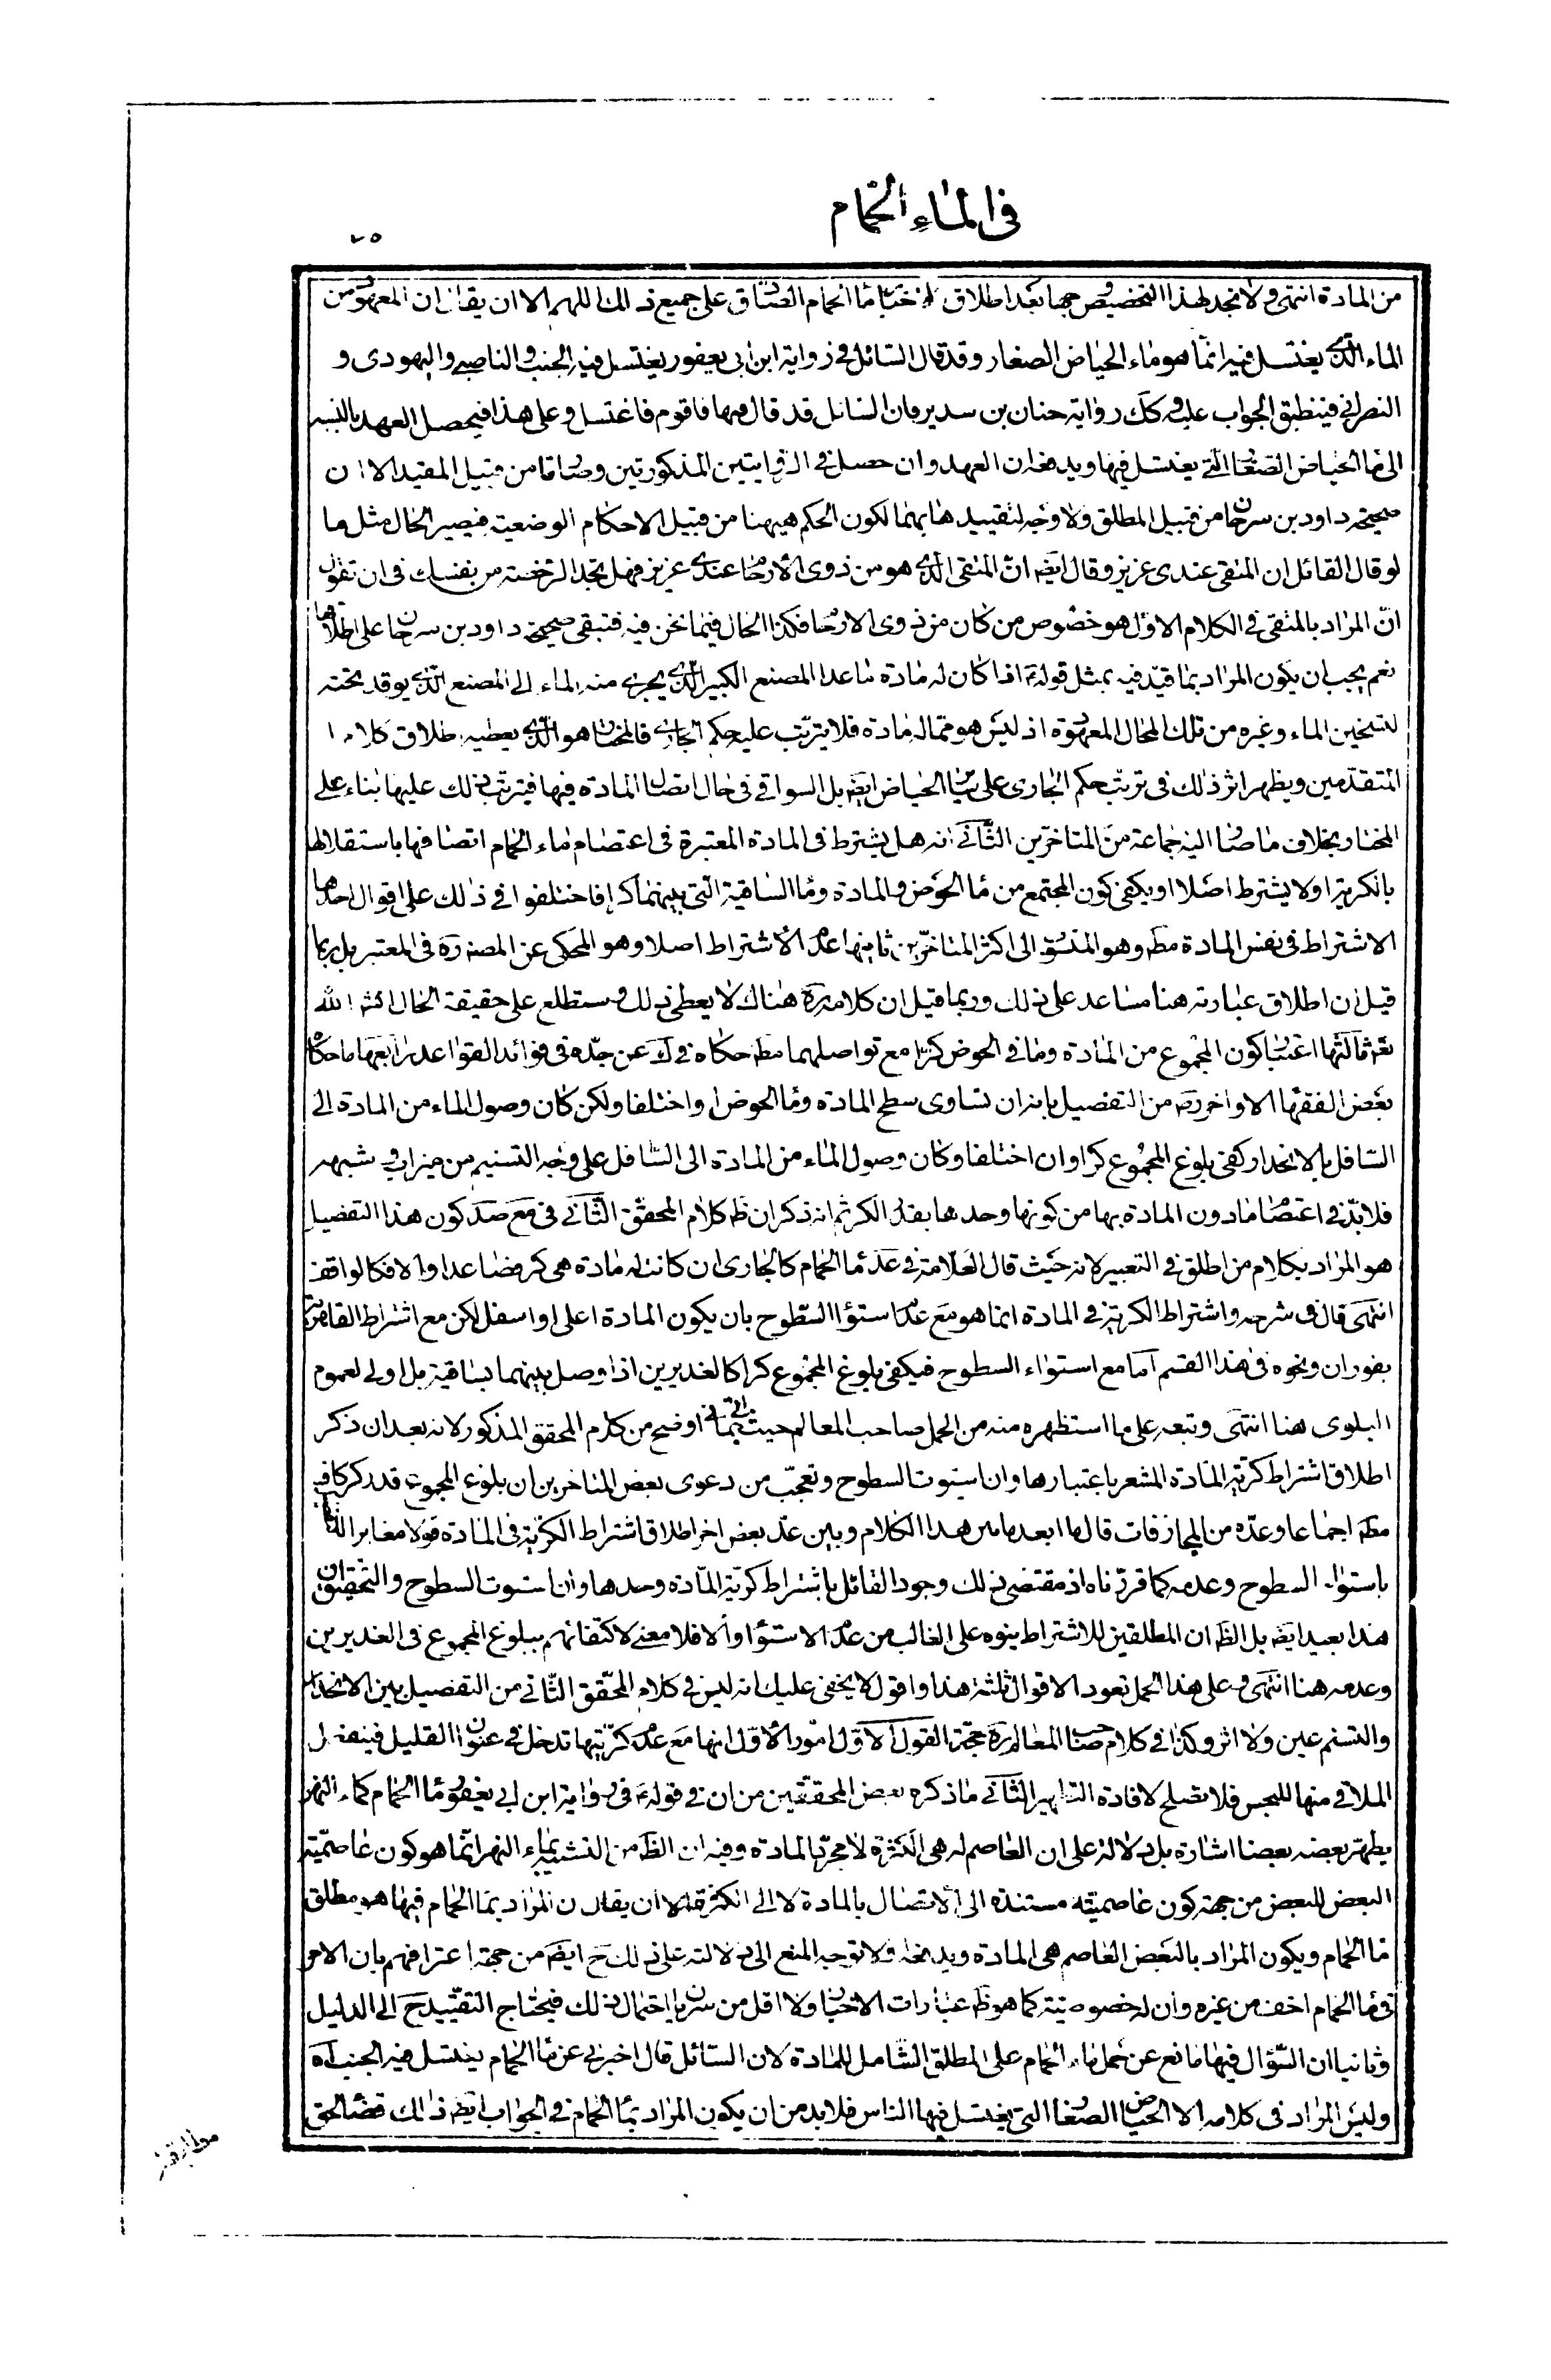 في الماء الحمام
٧٥
من المادة انتهى ولا نجد لهذا التخصيص وجها بعد اطلاق الاخبار ماء الحمام الصادق على جميع ذلك اللهم الا ان يقال ان المعهود من
الماء الذى يغتسل فيه انما هو ماء الحياض الصغار وقد قال السائل في رواية ابن ابى يعفور يغتسل فيه الجنب والناصبى واليهودى و
النصرانى فينطبق الجواب عليه وكك رواية حنان بن سدير فان السائل قد قال فيها فاقوم فاغتسل وعلى هذا فيحصل العهد بالنسبة
الى ماء الحياض الصغار التى يغتسل فيها ويدفعه ان العهد وان حصل في الروايتين المذكورتين وصارتا من قبيل المقيد الا ان
صحيحة داود بن سرحان من قبيل المطلق ولا وجه لتقييدها بهما لكون الحكم هيهنا من قبيل الاحكام الوضعية فيصير الحال مثل ما
لو قال القائل ان المتقى عندى عزيز وقال ايضه انّ المتقى الذى هو من ذوى الأرحام عندى عزيز فهل تجد الرخصة من نفسك فى ان تقول
انّ المراد بالمتقى في الكلام الاوّل هو خصوص من كان من ذوى الارحام فكذا الحال فيما نحن فيه فتبقى صحيحة داود بن سرحان على اطلاقها
نعم يجب ان يكون المراد بما قيّد فيه بمثل قوله ع اذا كان له مادة ما عدا المصنع الكبير الذى يجرى منه الماء الى المصنع الذى يوقد تحته
لتسخين الماء وغيره من تلك المحال المعهودة اذ ليس هو مما له مادة فلا يترتّب عليه حكم الجارى فالمختار هو الذى يعطيه اطلاق كلام
المتقدّمين ويظهر اثر ذلك فى ترتّب حكم الجارى على سائر الحياض ايضه بل السواقى في حال اتصال المادة فيها فيترتب ذلك عليها بناء على
المختار وبخلاف ما صار اليه جماعة من المتاخرين الثّانى انه هل يشترط فى المادة المعتبرة في اعتصام ماء الحمام اتصافها باستقلالها
بالكرية او لا يشترط اصلا او يكفى كون المجتمع من ماء الحوض والمادة وماء الساقية التى بينهما كرا فاختلفوا في ذلك على اقوال احدها
الاشتراط فى نفس المادة مطه وهو المنسوب الى اكثر المتاخّرين ثانيها عدم الأشتراط اصلا وهو المحكى عن المصنف ره فى المعتبر بل ربما
قيل ان اطلاق عبارته هنا مساعد على ذلك وربما قيل ان كلامه ره هناك لا يعطى ذلك وستطلع على حقيقة الحال انشه الله
تعه ثالثها اعتبار كون المجموع من المادة وما فى الحوض كرّا مع تواصلهما مطه حكاه فى ك عن جدّه فى فوائد القواعد رابعها ما حكاه
بعض الفقهاء الاواخر ره من التفصيل بانه ان تساوى سطح المادة وماء الحوض او اختلفا ولكن كان وصول الماء من المادة الى
السّافل بالانحدار كفى بلوغ المجموع كرا وان اختلفا وكان وصول الماء من المادة الى السّافل على وجه التسنيم من ميزاب وشبهه
فلا بدّ في اعتصام ما دون المادة بها من كونها وحدها بقدر الكر ثم انه ذكر ان ظ كلام المحقّق الثّانى فى مع صد كون هذا التفصيل
هو المراد بكلام من اطلق في التعبير لانه حيث قال العلّامة في عد ماء الحمام كالجارى ان كانت له مادة هى كر فصاعدا والا فكالواقف
انتهى قال فى شرحه واشتراط الكرّية في المادة انما هو مع عدم استواء السّطوح بان يكون المادة اعلى او اسفل لكن مع اشتراط القاهرية
بفوران ونحوه فى هذا القسم امّا مع استواء السطوح فيكفى بلوغ المجموع كرا كالغديرين اذا وصل بينهما بساقية بل اولى لعموم
البلوى هنا انتهى وتبعه على ما استظهره منه من الحمل صاحب المعالم حيث اوضح من كلام المحقق المذكور لانه بعد ان ذكر
اطلاق اشتراط كرّية المادة المشعر باعتبارها وان استوت السطوح وتعجّب من دعوى بعض المتاخرين ان بلوغ المجموع قدر كر كاف
مطه اجماعا وعدّه من المجازفات قال ما ابعد ما بين هذا الكلام وبين عدّ بعض اخر اطلاق اشتراط الكرّية في المادة قولا مغايرا
باستواء السطوح وعدمه كما قررناه اذ مقتضى ذلك وجود القائل باشتراط كريّة المادة وحدها وان استوت السطوح والتحقيق ان
هذا بعيد ايضه بل الظه ان المطلقين للاشتراط بنوه على الغالب من عدم الاستواء والا فلا معنى لاكتفائهم ببلوغ المجموع فى الغديرين
وعدمه هنا انتهى وعلى هذا الحمل تعود الاقوال ثلثة هذا واقول لا يخفى عليك انه ليس في كلام المحقق الثّانى من التفصيل بين الانحدار
والتسنم عين ولا اثر وكذا في كلام صاحب المعالم ره حجّة القول الاوّل امور الأوّل انها مع عدم كرّيتها تدخل في عنوان القليل فينفعل
الملاقى منها للنجس فلا تصلح لافادة التطهير الثّانى ما ذكره بعض المحققين من ان في قوله ع فى رواية ابن ابى يعفور ماء الحمام كماء النهر
يطهر بعضه بعضا اشارة بل دلالة على ان العاصم له هى الكثرة لا مجرّد المادة وفيه ان الظه من التشبيه بماء النهر انّما هو كون عاصميّة
البعض للبعض من جهة كون عاصميته مستندة الى الاتصال بالمادة لا الى الكثرة الا ان يقال ان المراد بماء الحمام فيها هو مطلق
ماء الحمام ويكون المراد بالبعض العاصم هى المادة ولا توجيه المنع الى دلالته على ذلك ح ايضه من حجة اعترافهم بان الامر
فى ماء الحمام اخف من غيره وان له خصوصيّة كما هو ظ عبارات الاخبار ولا اقل من سريان احتمال ذلك فيحتاج التقييد ح الى الدليل
وثانيا ان السّؤال فيها مانع عن حمل ماء الحمام على المطلق الشّامل للمادة لان السّائل قال اخبرنى عن ماء الحمام يغتسل فيه الجنب اه
وليس المراد فى كلامه الا الحياض الصغار التى يغتسل فيها الناس فلا بد من ان يكون المراد بماء الحمام في الجواب ايضه ذلك قضاء لحق
مطابقة